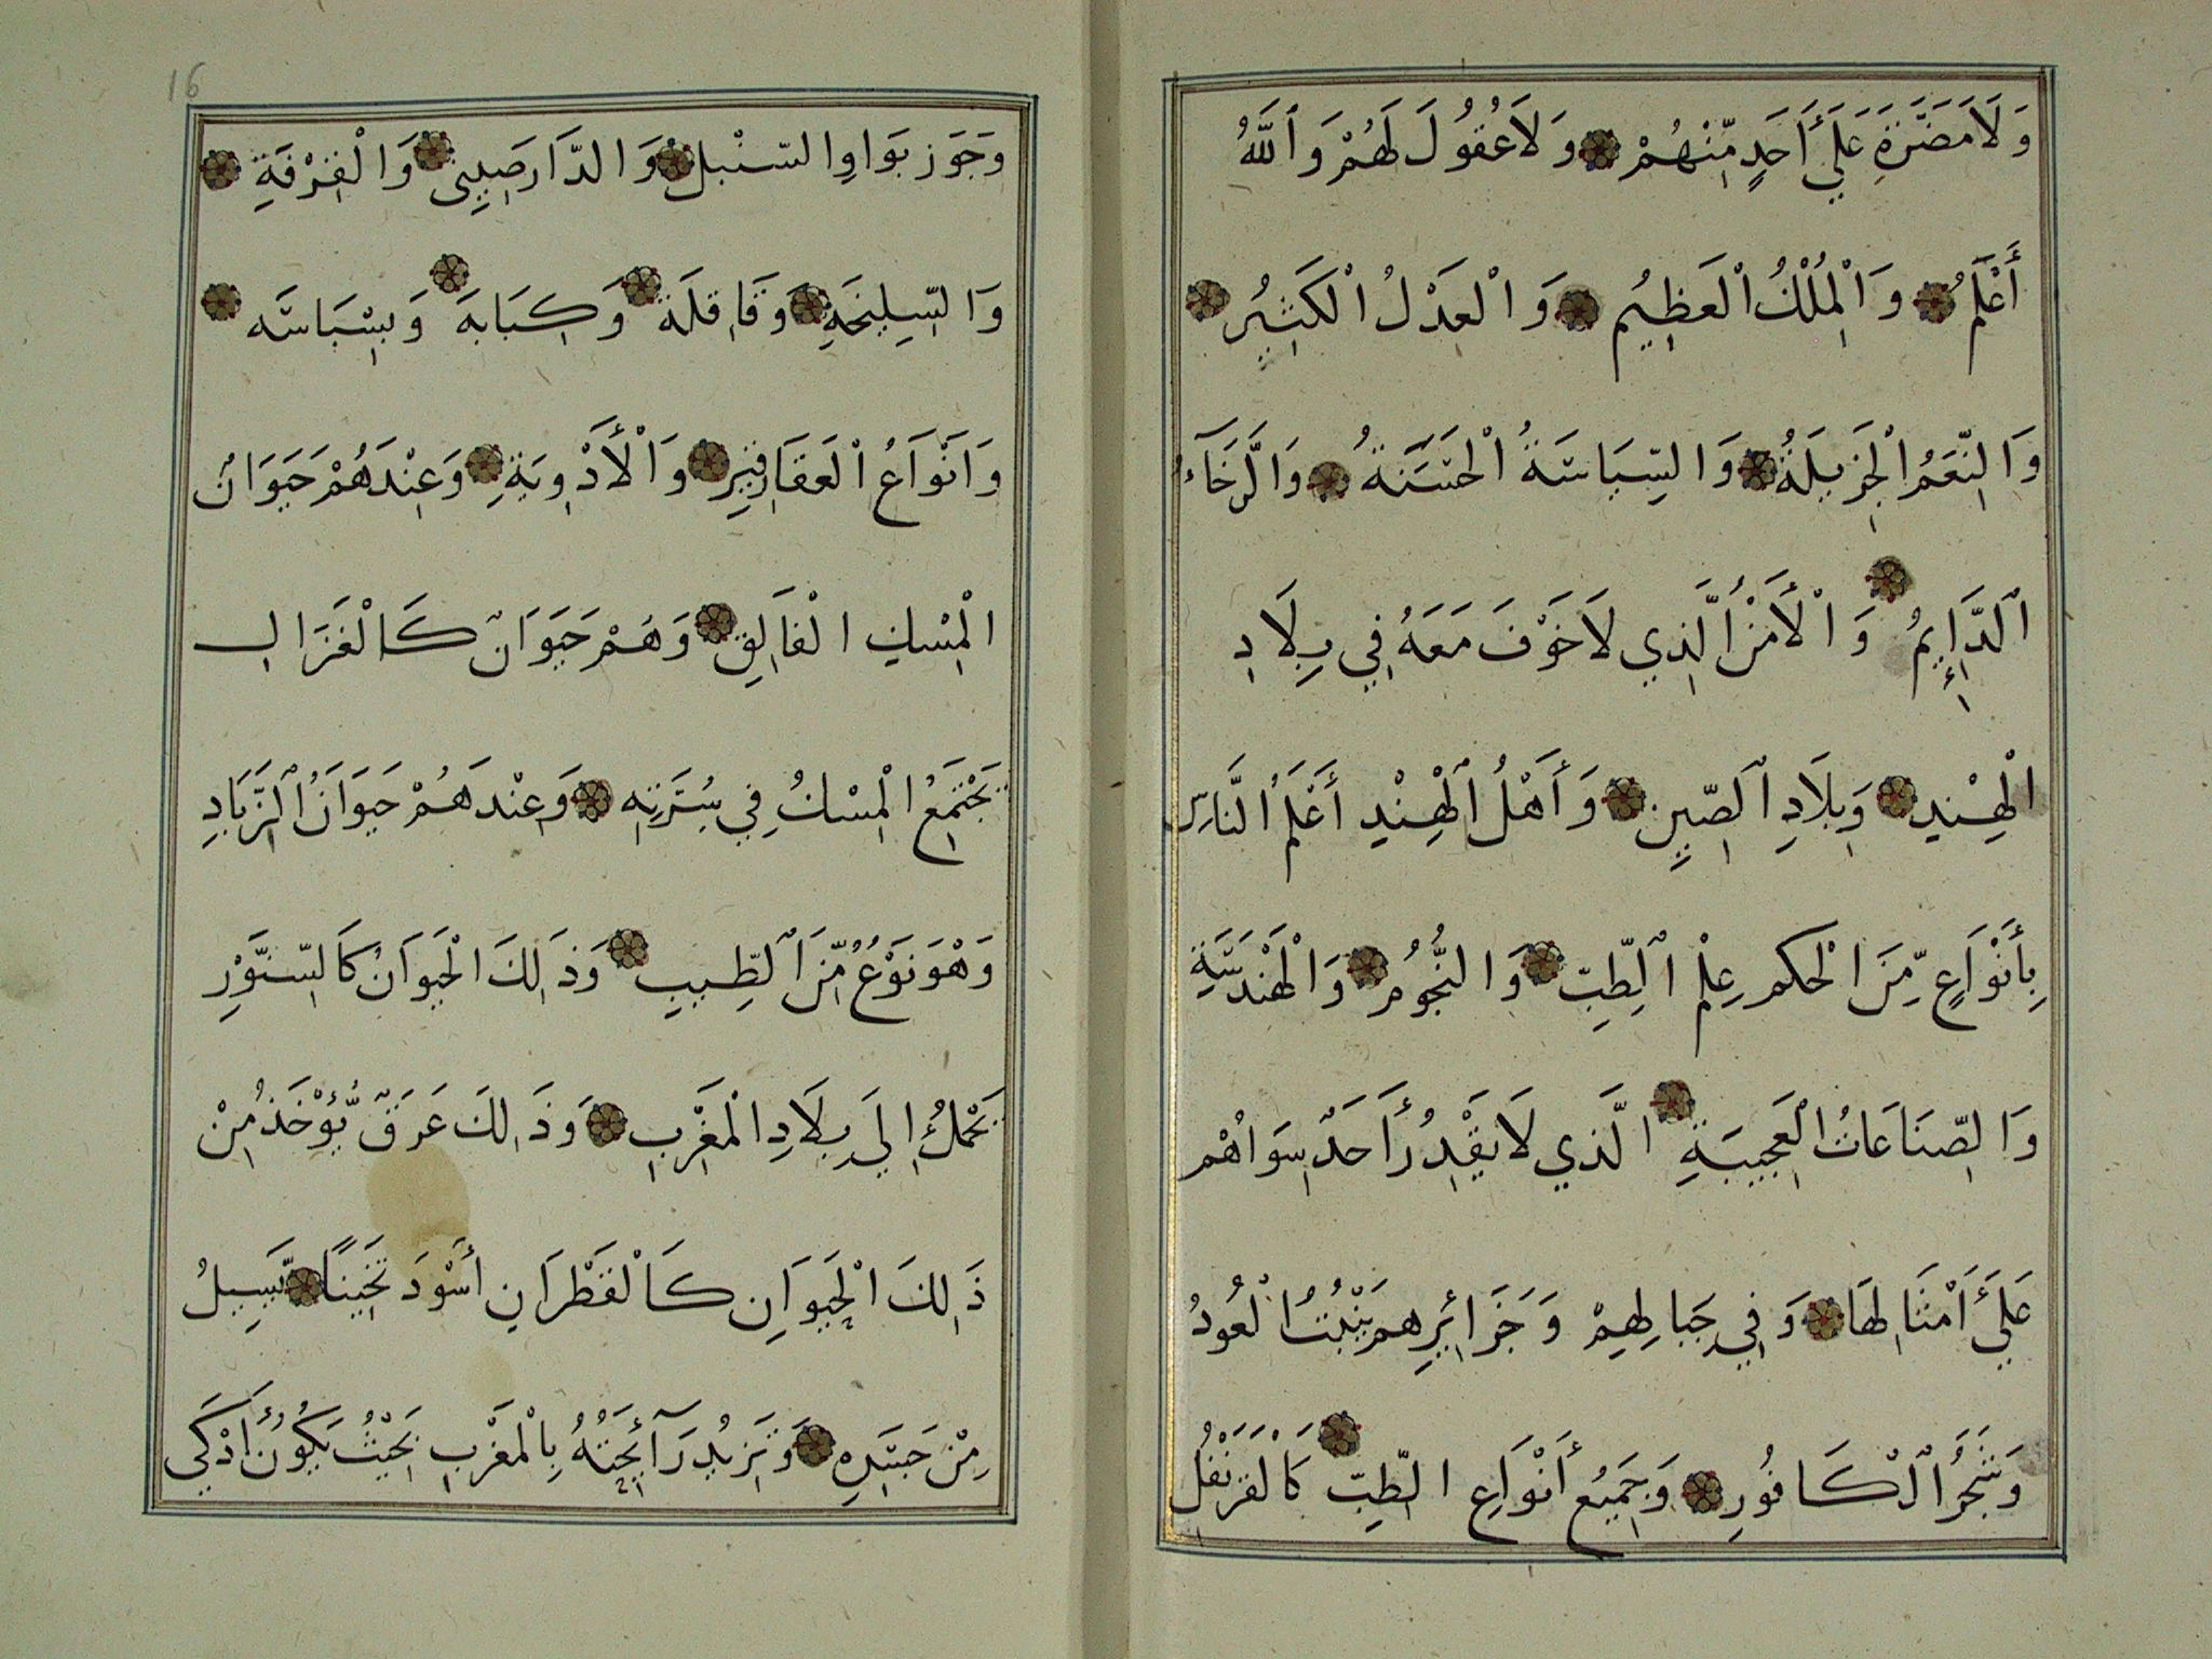 وَلَا مَضَرَّةَ عَلَيَ أَحَدٍ مِّنْهُمْ وَلَا عُقُولَ لَهُمْ وَاللَّهُ
أَعْلَمُ وَالْمُلْكُ الْعَظِيمُ وَالْعَدْلُ الْكَثِيرُ
وَالنِّعَمُ الْجَزِيلَةُ وَالسِّيَاسَةُ الْحَسَنَةُ وَالرَّخَآءُ
الدَّاإِيمُ وَالْأَمْنُ الَّذِي لَا خَوْفَ مَعَهُ فِي بِلَادِ
الْهِنْدِ وَبِلَادِ الصِّينِ وَأَهْلُ الْهِنْدِ أَعْلَمُ النَّاسِ
بِأَنْوَاعٍ مِّنَ الْحكم عِلْمِ الطِّبِّ وَالنُّجُومِ وَالْهَنْدَسَةِ
وَالصِّنَاعَاتُ الْعَجِيبَةِ الَّذِي لَا يَقْدِرُ أَحَدٌ سِوَاهُم
عَلَيَ أَمْثَالِهَا وَفِي جِبَالِهِمْ وَجَزَائِرِهِم يَنْبُتُ الْعُودُ
وَشَجَرُ الْكَافُورِ وَجَمِيعُ أَنْوَاعِ الطِّيبِ كَالْقَرَنْفُلِ
16
وَجَوَز بَوَا وِالسّنْبل وَالدَّارصَِينِى وَالْقِرْفَةِ
وَالسِّلِيخَةِ وَقَاقِلَة وَكِبَابَه وَبِسْبَاسَه
وَاَنْوَاَعُ الْعَقَاقِيرِ وَالْأَدْوِيَةِ وَعِنْدَهُمْ حَيَوَانُ
الْمِسْكِ الْفَالِقِ وَهُمْ حَيَوَانٌ كَالْغَزَالِ
يَجْتَمِعُ الْمِسْكُ فِي سُرَّتِهِ وَعِنْدَهُمْ حَيَوَانُ الزَّبَادِ
وَهْوَ نَوْعٌ مِّنَ الطِّيبِ وَذَلِكَ الْحَيَوَانُ كَالسِّنَّوْرِ
يَحْمِلُ إِلَيَ بِلَادِ الْمَغْرِبِ وَذَلِكَ عَرَقٌ يُّؤْخَذُ مِنْ
ذَلِكَ الْحَيَوَانِ كَالْقَطْرَانِ أَسْوَدَ ثَخِينًا يَّسِيلُ
مِنْ جَسَدِهِ وَتَزِيدُ رَآئِحَتُهُ بِالْمَغْرِبِ بَحَيْثُ يَكُونُ أَذْكَي